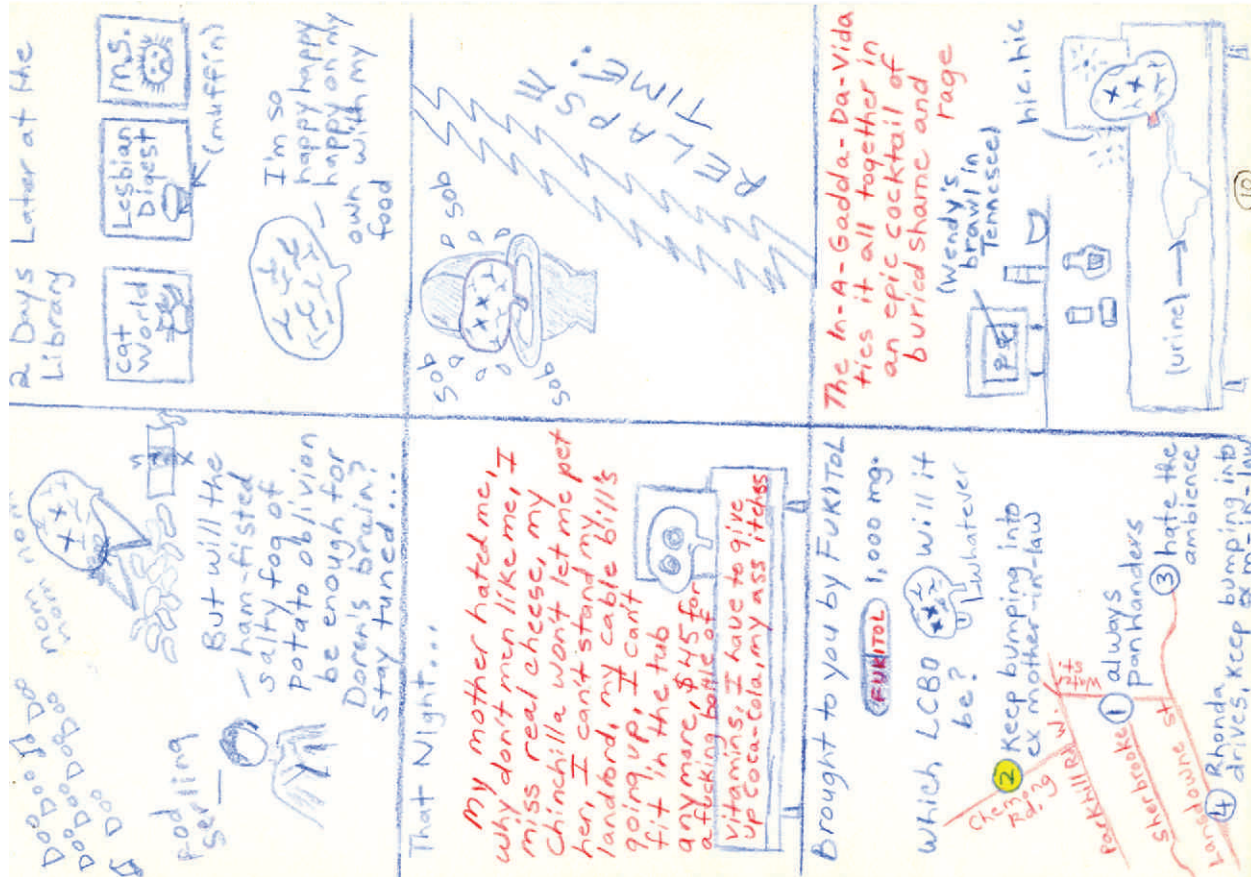 Doo Doo Doo Doo
Doo Doo Doo Doo
Doo
nom nom
nom nom
Rod
Serling
But will the
ham-fisted
salty fog of
potato oblivion
be enough for
Doreen's brain?
stay tuned...
2 Days Later at the
Library
cat
World
Lesbian
Digest
M.S.
(muffin)
I'm so
happy happy
happy on my
own with my
food
That Night...
My mother hated me,
why don't men like me, I
miss real cheese, my
chinchilla won't let me pet
her, I can't stand my
landlord, my cable bill's
going up, I can't
fit in the tub
any more, $45 for
a fucking bottle of
vitamins, I have to give
up Coca-Cola, my ass itches
sob
sob
sob
RELAPSE
TIME!
Brought to you by FUKITOL
FUKITOL
1,000 mg.
Which LCBO will it
be?
whatever
2 Keep bumping into
ex mother-in-law
Chemong
Rd.
Parkhill Rd. W.
Water
St.
1 always
panhandlers
Sherbrooke
Lansdowne St.
3 hate the
ambience
4 Rhonda
drives, keep bumping into
ex m-in-law
The In-A-Gadda-Da-Vida
ties it all together in
an epic cocktail of
buried shame and
rage
(Wendy's
brawl in
Tennessee)
hic, hic
(urine)
10